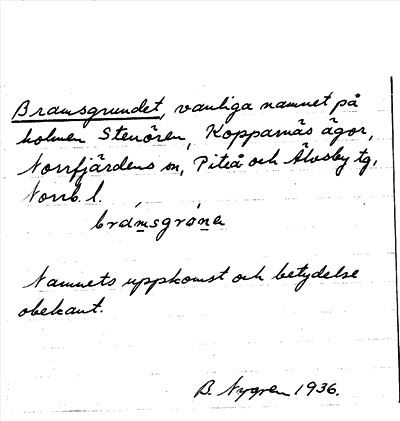 Bramsgrundet, vanliga namnet på
holmen Stenören, Kopparnäs ägor,
Norrfjärdens sn, Piteå och Älvsby tg,
Norrb. l.
bramsgróna
Namnets uppkomst och betydelse
obekant.
B. Nygren 1936.